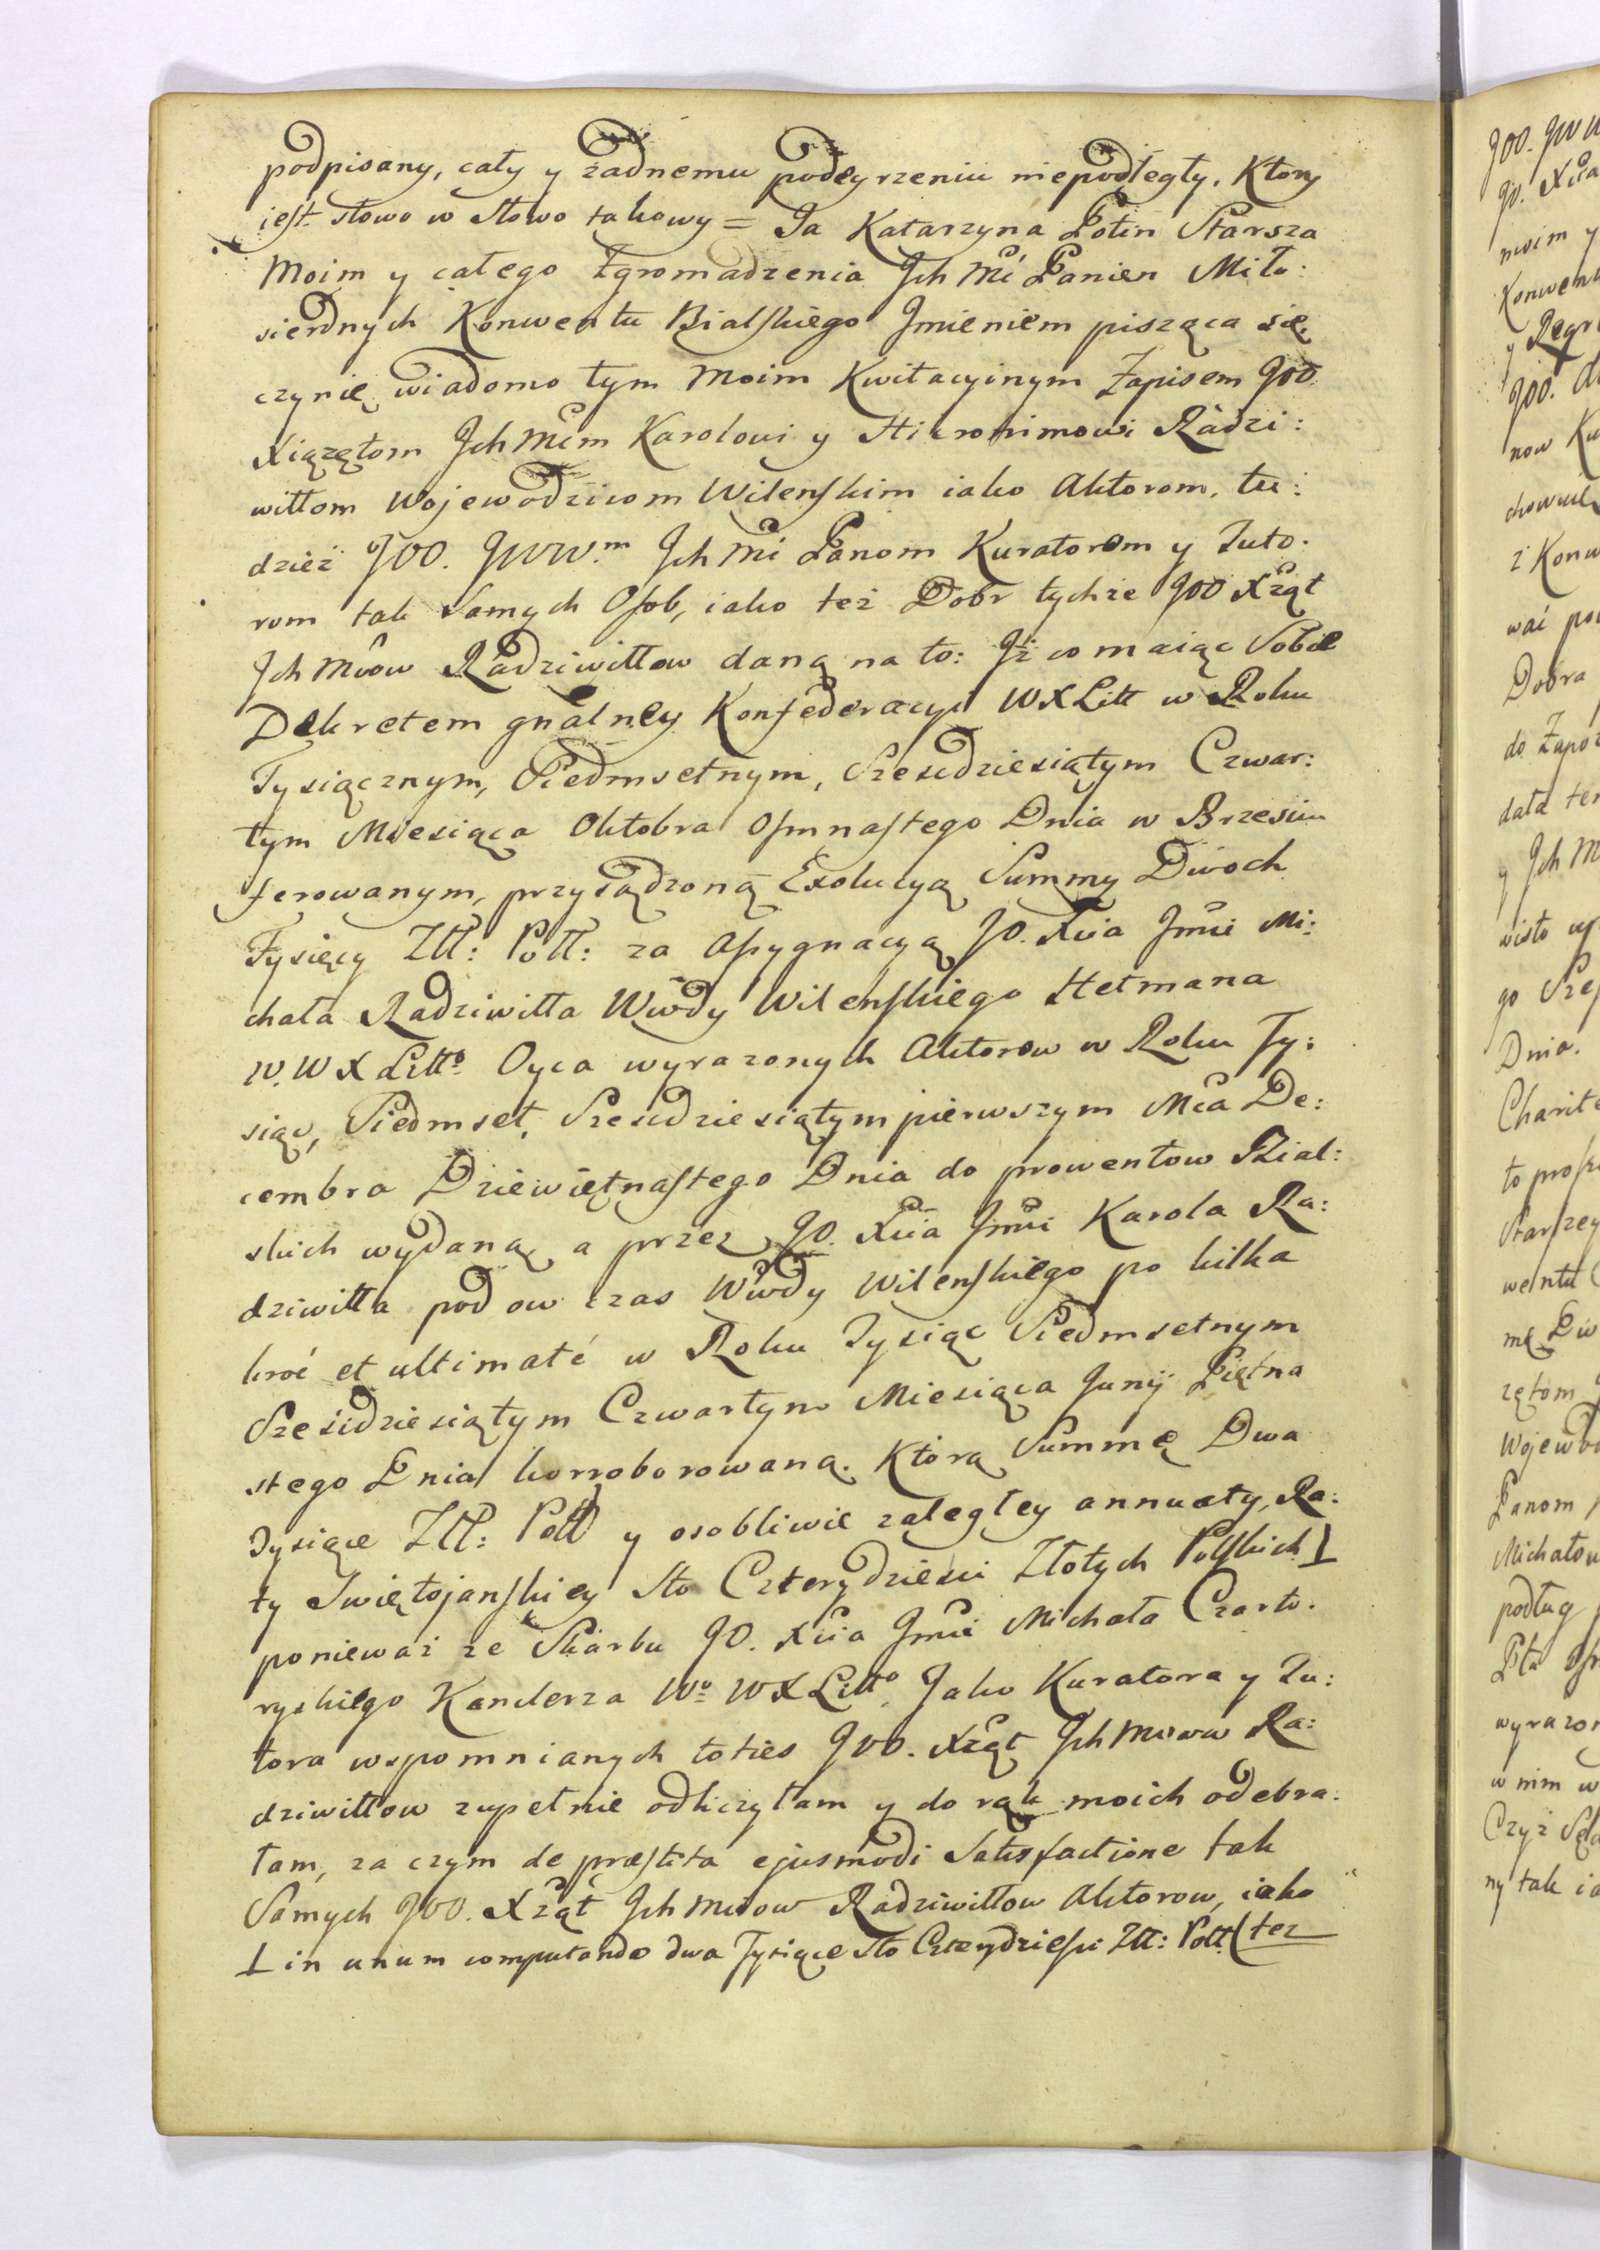 podpisany, cały y żadnemu podeyrzeniu niepodległy, Ktory
iest słowo w słowo takowy = Ja Katarzyna Potin Starsza
Moim y całego Zgromadzenia Jch Mć Panien Miło:
siernych Konwentu Bialskiego Jmieniem pisząca się
czynię wiadomo tym Moim Kwitacyinym Zapisem JOO
Xiążętom Jch Mcm Karolowi y Hieronimowi Radzi:
wiłłom Wojewodzicom Wilenskim iako Aktorom, tu:
dzież JOO. JWW.m Jch Mć Panom Kuratorom y Tuto:
rom tak Samych Osob, iako też Dobr tychże JOO Xżąt
Jch Mćiow Radziwiłłow daną na to: Jż co maiąc Sobie
Dekretem gnalney Konfederacyi WXLitt w Roku
Tysiącznym, Siedmsetnym, Szescdziesiątym Czwar:
tym Miesiąca Oktobra Osmnastego Dnia w Brzesciu
ferowanym, przysądzoną Exolucyą Summy Dwoch
Tysięcy Ztt: Poll: za Assygnacyą JO. Xcia Jmci Mi:
chała Radziwiłła Wwdy Wilenskiego Hetmana
W. WXLitto Oyca wyrazonych Aktorow w Roku Ty:
siąc, Siedmset, Szescdziesiątym pierwszym Mca De:
cembra Dziewiętnastego Dnia do prowentow Bial:
skich wydaną a przez JO. Xcia Jmci Karola Ra:
dziwiłła pod ow czas Wwdy Wilenskiego po kilka
kroć et ultimaté w Roku Tysiąc Siedmsetnym
Sześćdziesiątym Czwartym Miesiąca Junij Piętna
stego Dnia korroborowaną. Ktorą Summę Dwa
Tysiące Ztt: Poll y osobliwie zaległey annuaty, Ra:
ty Swiętojanskiey Sto Czterydziesci Złotych Polskich ⊥
ponieważ ze Skarbu JO. Xcia Jmci Michała Czarto:
ryskiego Kanclerza Wo WXLitto Jako Kuratora y Tu:
tora wspomnianych toties JOO. Xżąt Jch Mciow Ra:
dziwiłłow zupełnie odliczyłam y do rąk moich odebra:
łam, za czym de præstita ejusmodi Satisfactione tak
Samych JOO. Xżąt Jch Mciow Radziwiłłow Aktorow, iako
⊥ in unum computando dwa Tysiące Sto Czterydziesci Ztt: Poll (tez